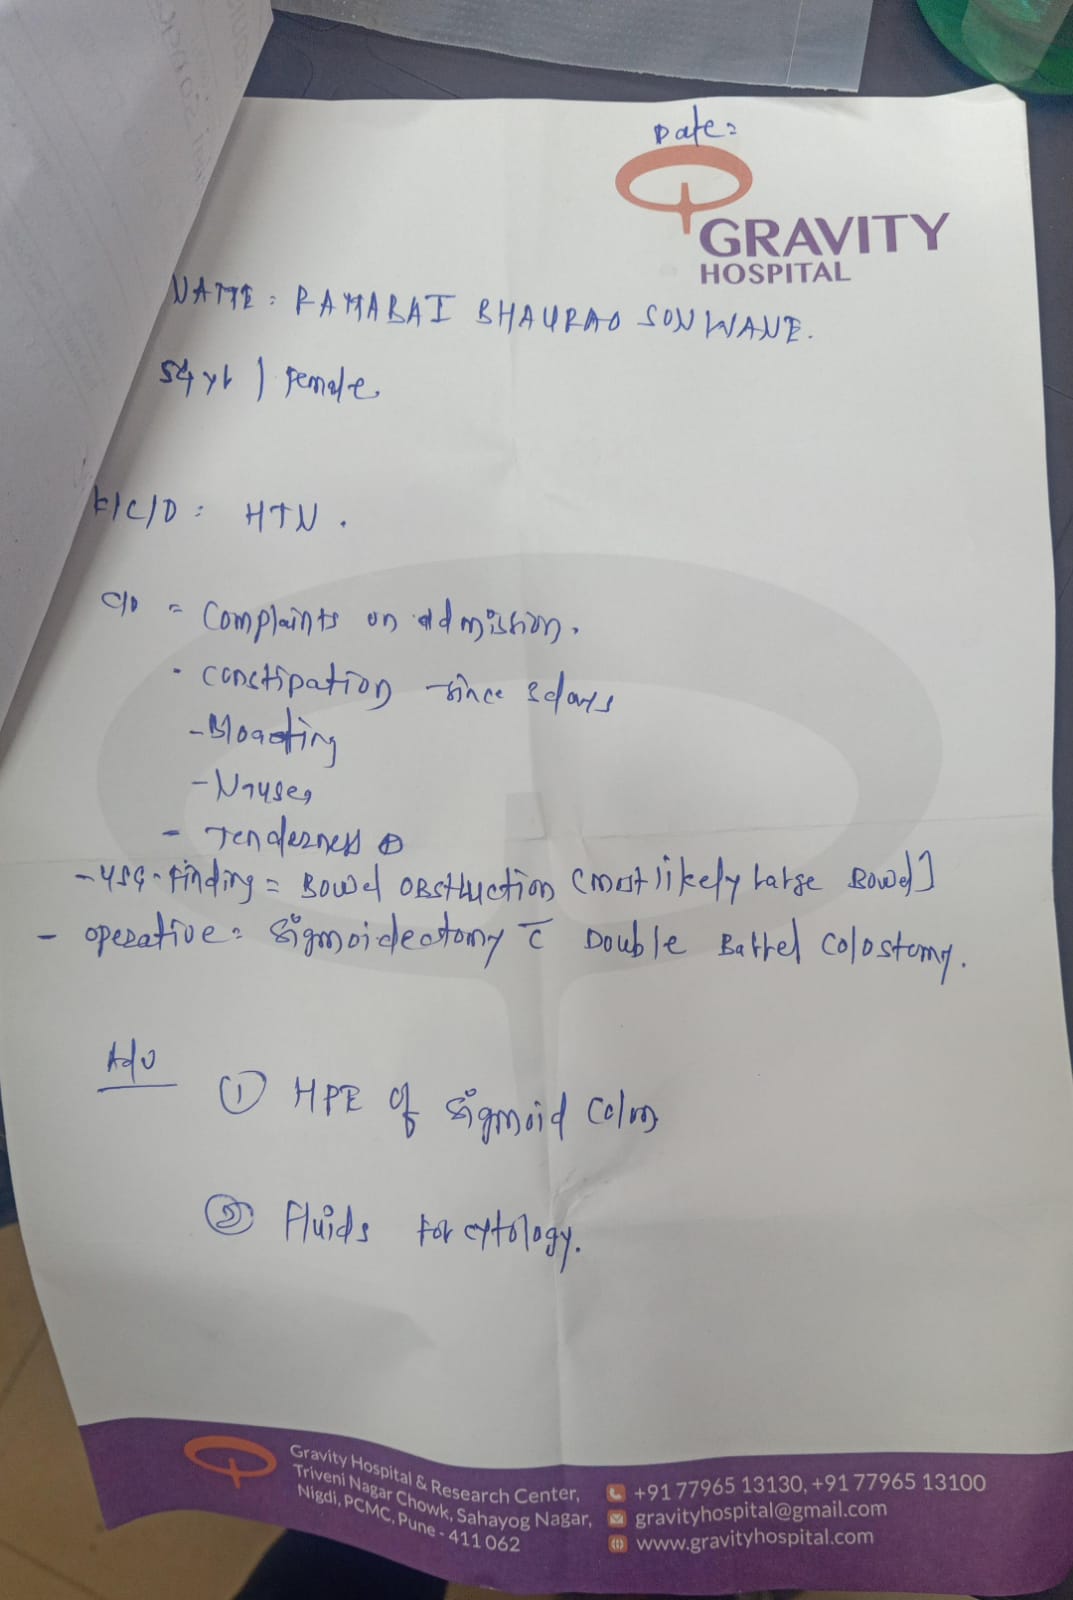 Date:
GRAVITY
HOSPITAL
NAME: RAMABAI BHAURAO SONWANE.
54 yr / Female
K/C/O: HTN.
C/O = Complaints on admission.
· Constipation since 3 days
- Bloating
- Nausea
- Tenderness ⊕
- USG-Finding = Bowel Obstruction (most likely Large Bowel]
- Operative: Sigmoidectomy c̄ Double Barrel Colostomy.
Adv
① HPE of Sigmoid Colon
② Fluids For cytology.
Gravity Hospital & Research Center,
Triveni Nagar Chowk, Sahayog Nagar,
Nigdi, PCMC, Pune - 411 062
+91 77965 13130, +91 77965 13100
gravityhospital@gmail.com
www.gravityhospital.com